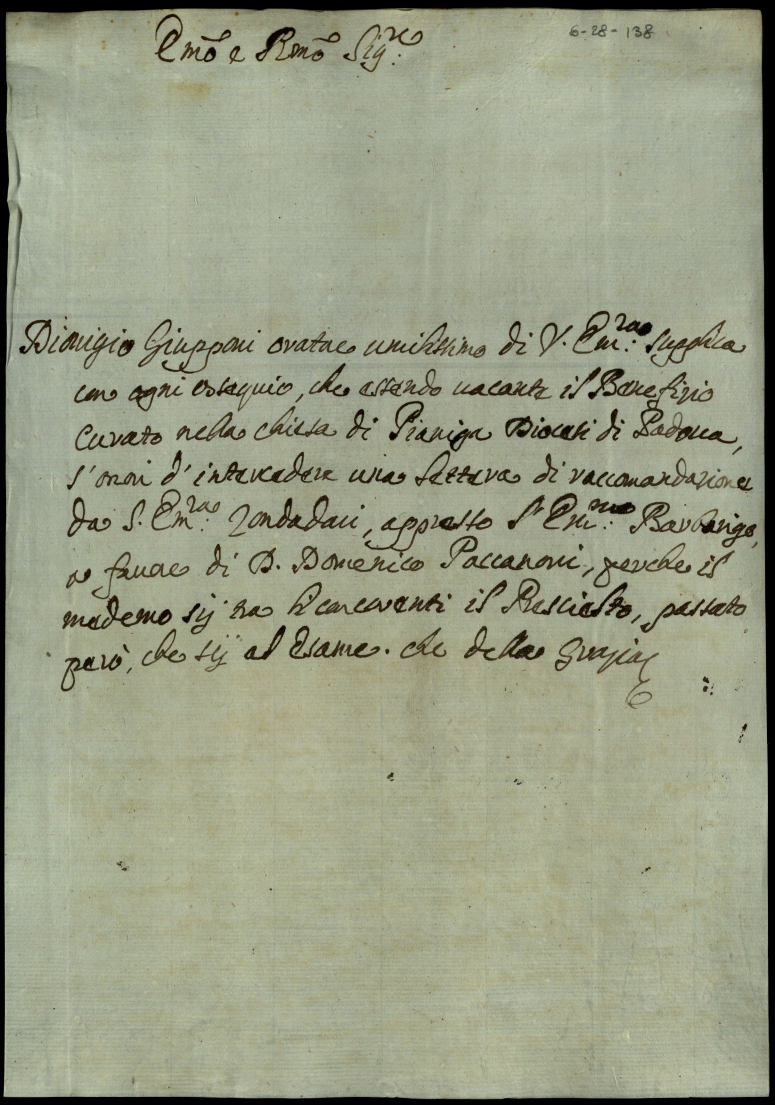 6-28-138
Emo e Rmo Sigre:
Dionigio Giupponi oratore umilissimo di V. Emza: supplica
con ogni ossequio, che essendo vacante il Benefizio
Curato nella chiesa di Pianiga Diocesi di Padova,
s'onori d'intercedere una lettera di raccomandazione
da S. Emza: Zondadari, appresso l'Emmo: Barbarigo,
a favore di D. Domenico Paccanoni, perche il
mademo sij tra li concorenti il Prescielto, passato
però, che sij al Esame. che della Grazia